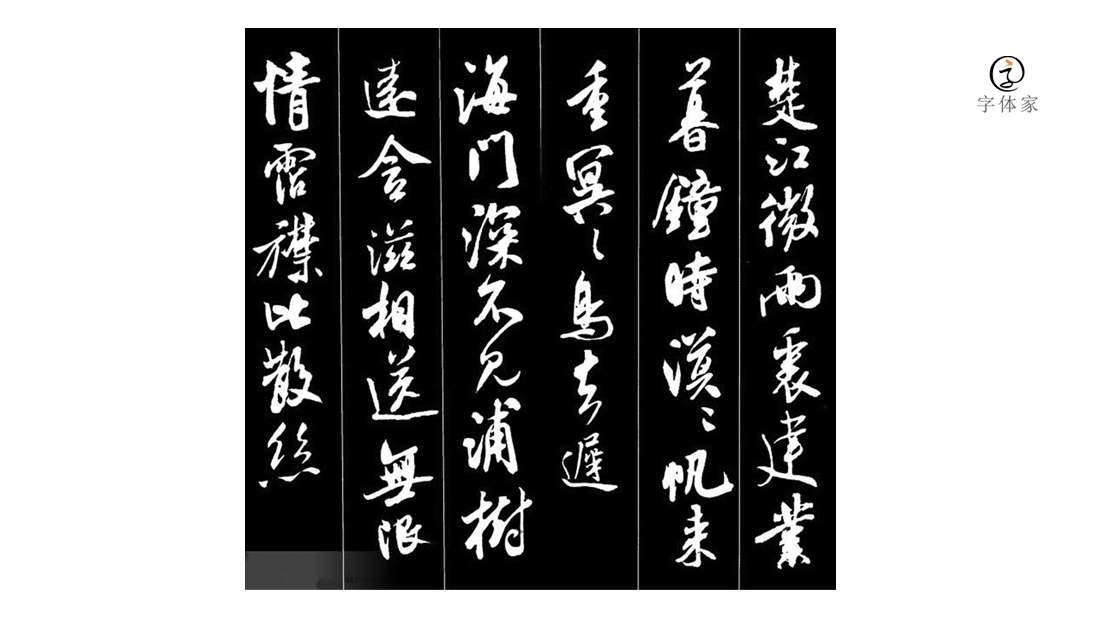 楚江微雨裏建業
暮鐘時漠〻帆来
重冥〻鳥去遲
海門深不見浦樹
遠含滋相送無限
情霑襟比散絲
字
字体家